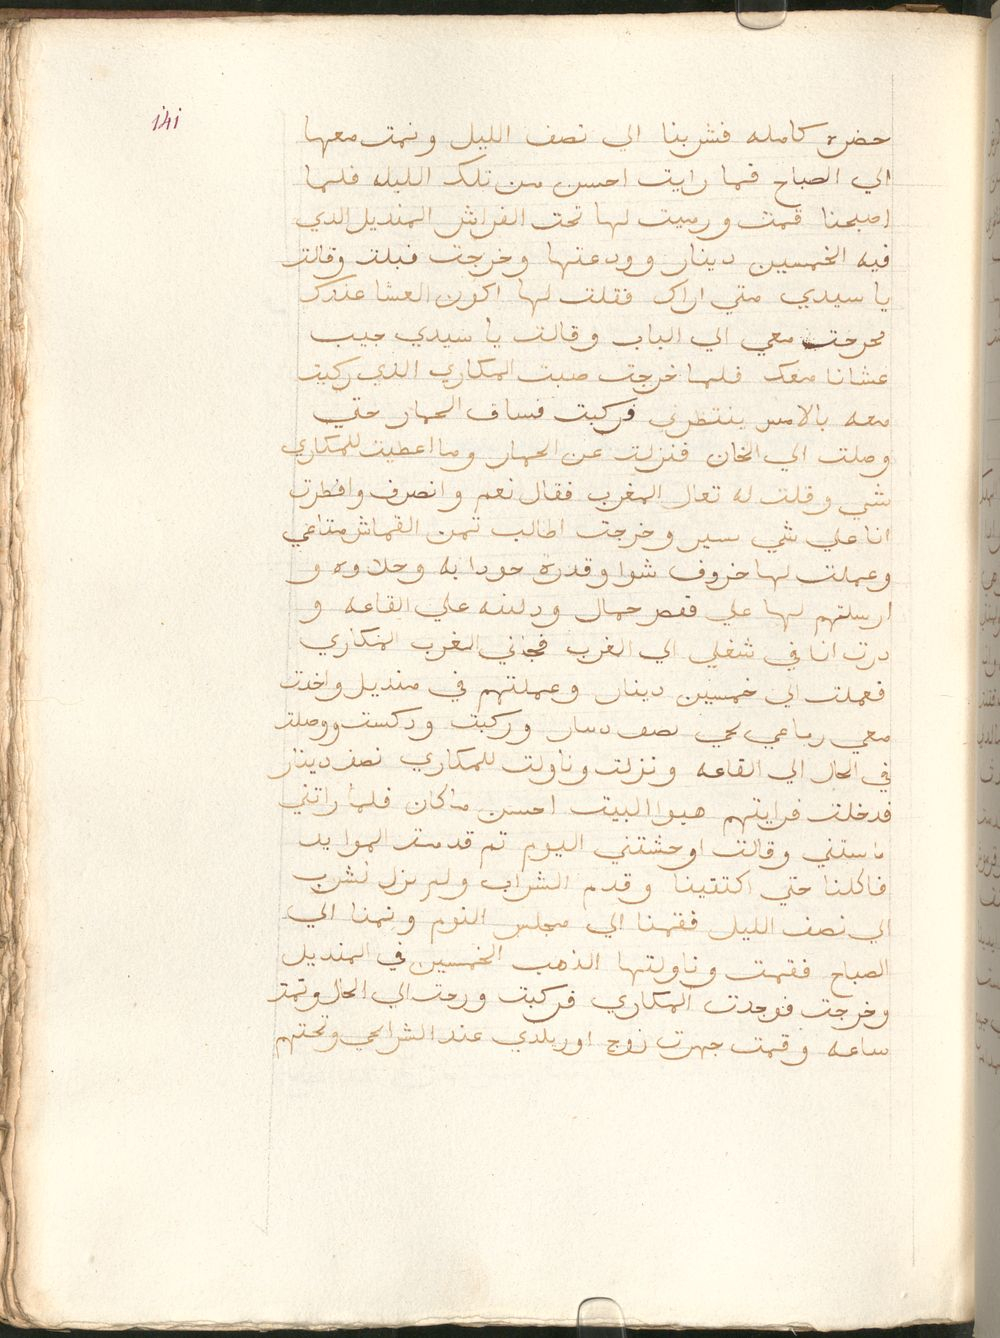 141
حضره كامله فشربنا الي نصف الليل ونمت معها
الي الصباح فما رايت احسن من تلك الليله فلما
اصبحنا قمت ورميت لها تحت الفراش المنديل الدي
فيه الخمسين دينار وودعتها وخرجت فبلت وقالت
يا سيدي متي اراك فقلت لها اكون العشا عندك
فخرجت معي الي الباب وقالت يا سيدي جيب
عشانا معك فلما خرجت صبت المكاري الذي ركبت
معه بالامس ينتظرني فركبت فساق الحمار حتي
وصلت الي الخان فنزلت عن الحمار وما اعطيت للمكاري
شي وقلت له تعال المغرب فقال نعم وانصرف وافطرت
انا علي شي يسير وخرجت اطالب تمن القماش متاعي
وعملت لها خروف شوا وقدرة جودابه وحلاوه و
ارسلتهم لها علي قفص حمال ودليته علي القاعه و
درت انا في شغلي الي المغرب فجاني المغرب المكاري
فعملت الي خمسين دينار وعملتهم في منديل واخدت
معي رباعي بجي نصف دينار وركبت ووصلت
في الحال الي القاعه ونزلت وناولت للمكاري نصف دينار
فدخلت فرايتهم هيوا البيت احسن ماكان فلما راتني
باستني وقالت اوحشتني اليوم تم قدمت الموايد
فاكلنا حتي اكتفينا وقدم الشراب ولم نزل نشرب
الي نصف الليل فقمنا الي مجلس النوم ونمنا الي
الصباح فقمت وناولتها الذهب الخمسين في المنديل
وخرجت فوجدت المكاري فركبت ورحت الي الخان ونمت
ساعه وقمت جهزت زوج اوز بلدي عند الشرايحي وتحتهم